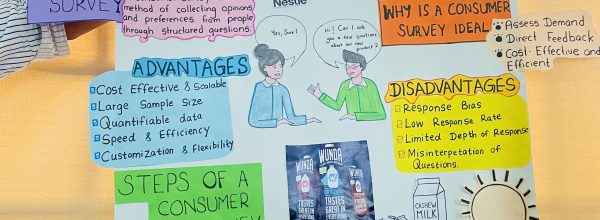 SURVEY
method of collecting opinions
and preferences from people
through structured questions.
Nestlé
WHY IS A CONSUMER
SURVEY IDEAL
Assess Demand
Direct Feedback
Cost-Effective and
Efficient
Yes, Sure!
Hi! Can I ask
you a few questions
about our new
product?
ADVANTAGES
Cost Effective & Scalable
Large Sample Size
Quantifiable data
Speed & Efficiency
Customization & Flexibility
DISADVANTAGES
Response Bias
Low Response Rate
Limited Depth of Response
Misinterpetation of
Questions.
STEPS OF A
CONSUMER
WUNDA
WUNDA
WUNDA
TASTES
GREAT IN
EVERYTHING
CASHEW
MILK